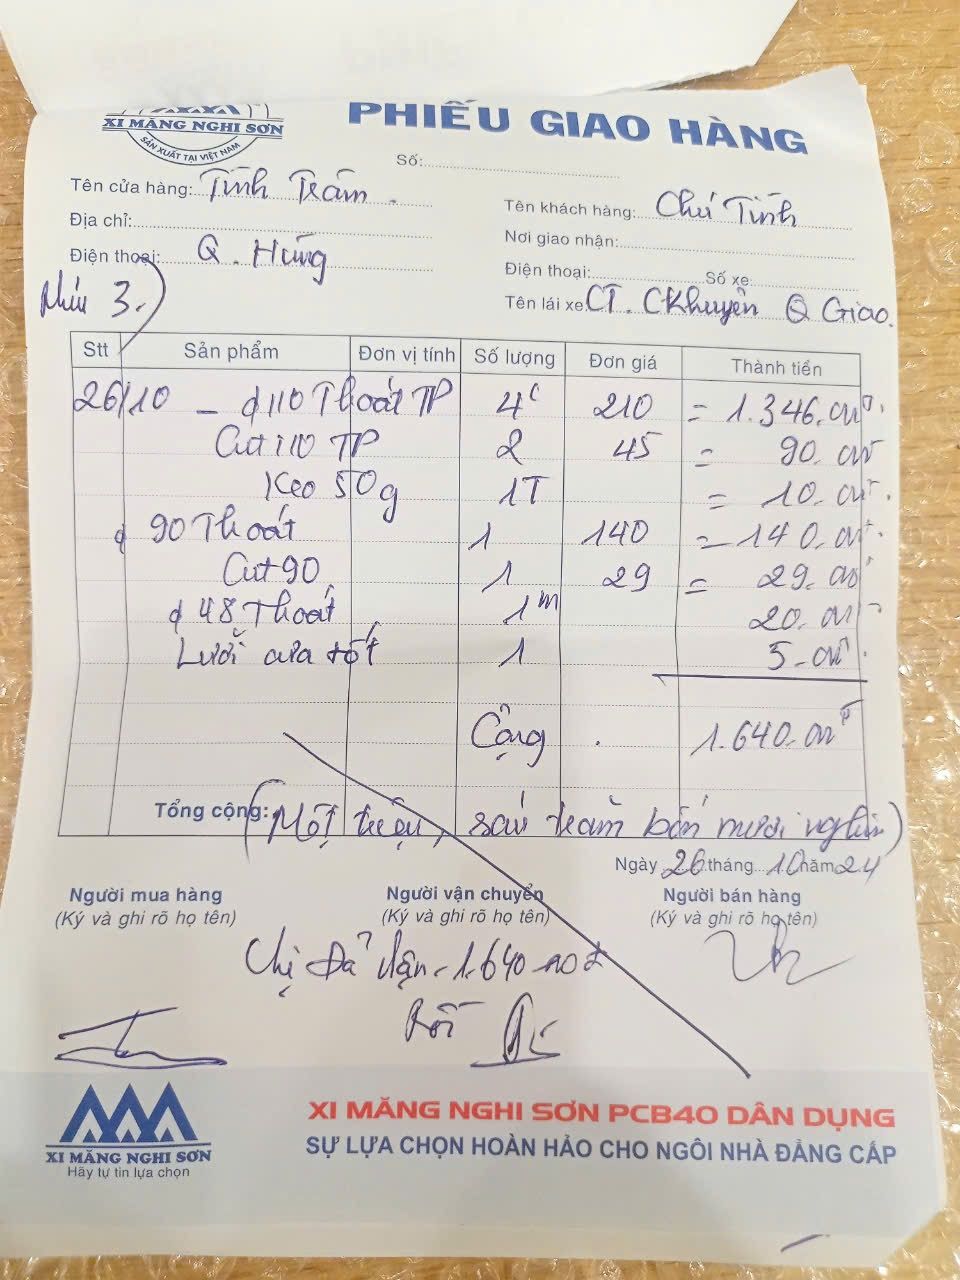 XI MĂNG NGHI SƠN
SẢN XUẤT TẠI VIỆT NAM
PHIẾU GIAO HÀNG
Số:
Tên cửa hàng: Tính Trâm.
Tên khách hàng: Chú Tính
Địa chỉ:
Nơi giao nhận:
Điện thoại: Q. Hùng
Điện thoại: Số xe:
3.
Tên lái xe: CT. CKhuyên Q Giao.
Stt Sản phẩm Đơn vị tính Số lượng Đơn giá Thành tiền
26/10 - ϕ110 Thoát TP 4c 210 = 1.346.
Cút 110 TP 2 45 = 90.
Keo 50g 1T = 10.
ϕ 90 Thoát 1 140 = 140.
Cút 90 1 29 = 29.
ϕ 48 Thoát 1m 20.
Lưỡi cưa tốt 1 5.
Cộng 1.640.
Tổng cộng: (Một triệu, sáu trăm bốn mươi nghìn)
Ngày 26 tháng 10 năm 24
Người mua hàng Người vận chuyển Người bán hàng
(Ký và ghi rõ họ tên) (Ký và ghi rõ họ tên) (Ký và ghi rõ họ tên)
Chị Đã Nhận 1.640
Rồi
XI MĂNG NGHI SƠN
Hãy tự tin lựa chọn
XI MĂNG NGHI SƠN PCB40 DÂN DỤNG
SỰ LỰA CHỌN HOÀN HẢO CHO NGÔI NHÀ ĐẲNG CẤP